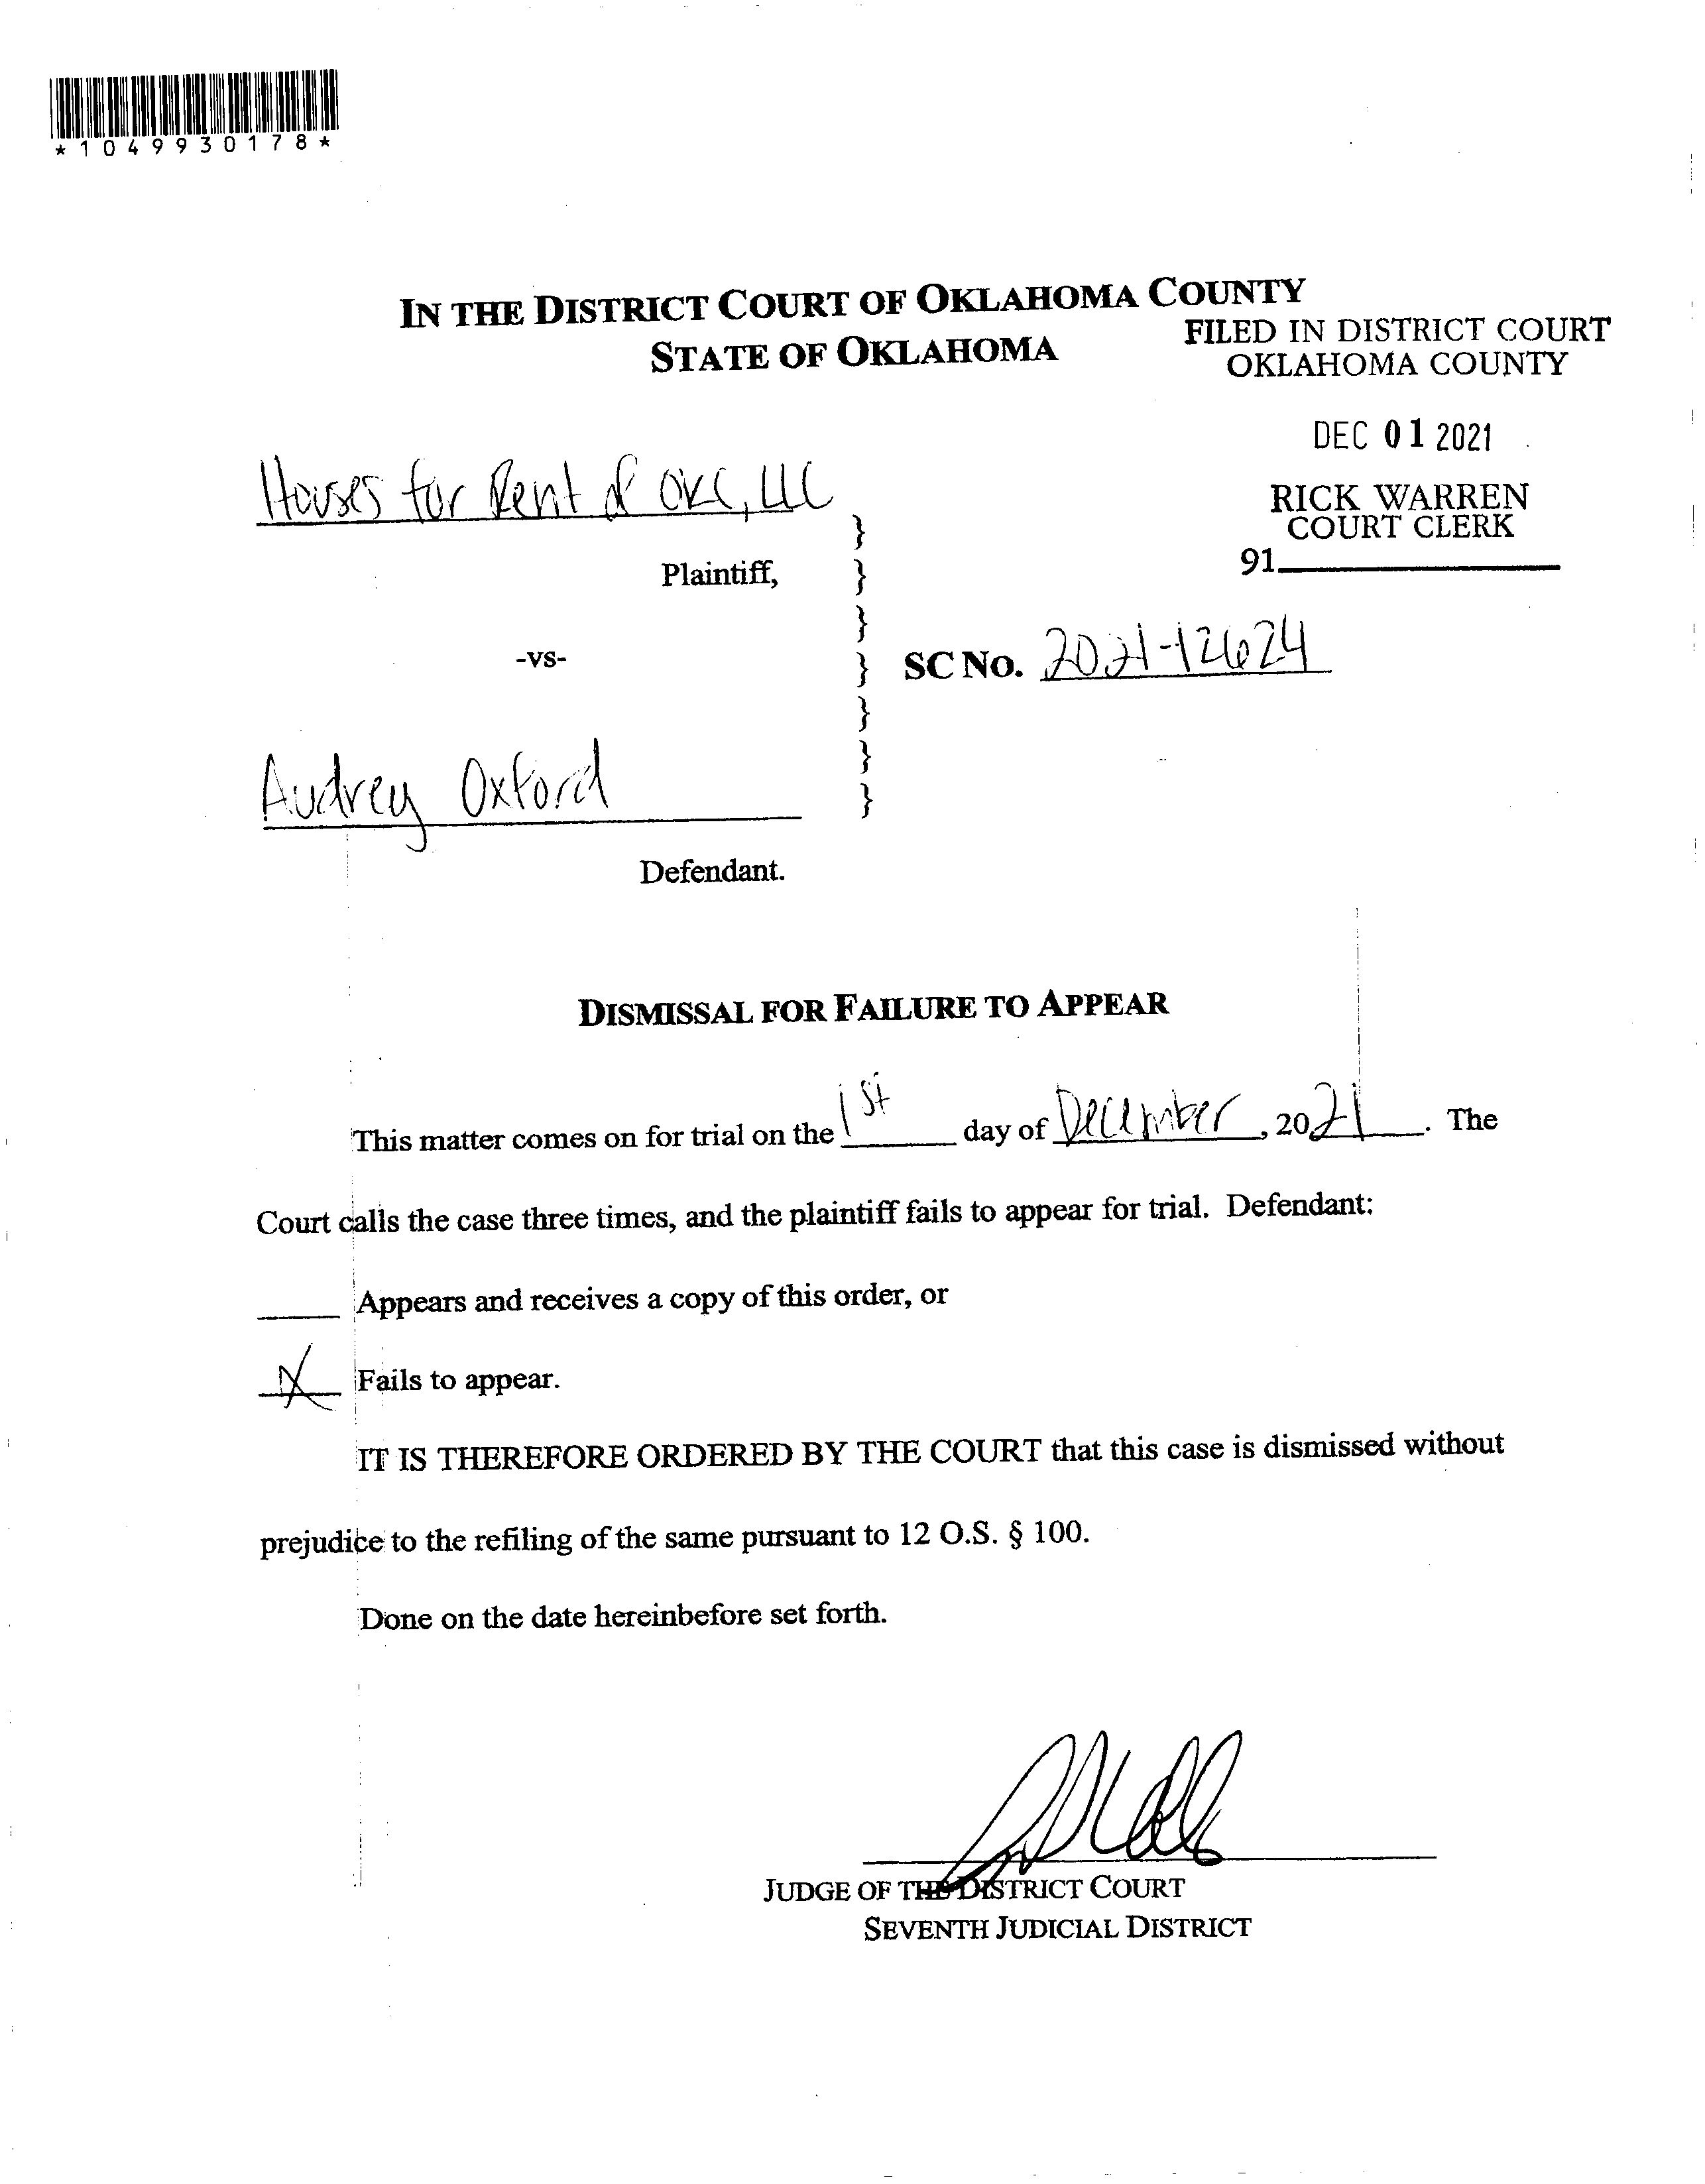 *1049930178*
IN THE DISTRICT COURT OF OKLAHOMA COUNTY
STATE OF OKLAHOMA
FILED IN DISTRICT COURT
OKLAHOMA COUNTY
DEC 01 2021
RICK WARREN
COURT CLERK
91
Houses for Rent of OKC, LLC
}
Plaintiff, }
}
-vs- } SC No. 2021-12624
}
}
Audrey Oxford }
Defendant.
DISMISSAL FOR FAILURE TO APPEAR
This matter comes on for trial on the 1st day of December, 2021. The
Court calls the case three times, and the plaintiff fails to appear for trial. Defendant:
____ Appears and receives a copy of this order, or
X Fails to appear.
IT IS THEREFORE ORDERED BY THE COURT that this case is dismissed without
prejudice to the refiling of the same pursuant to 12 O.S. § 100.
Done on the date hereinbefore set forth.
JUDGE OF THE DISTRICT COURT
SEVENTH JUDICIAL DISTRICT